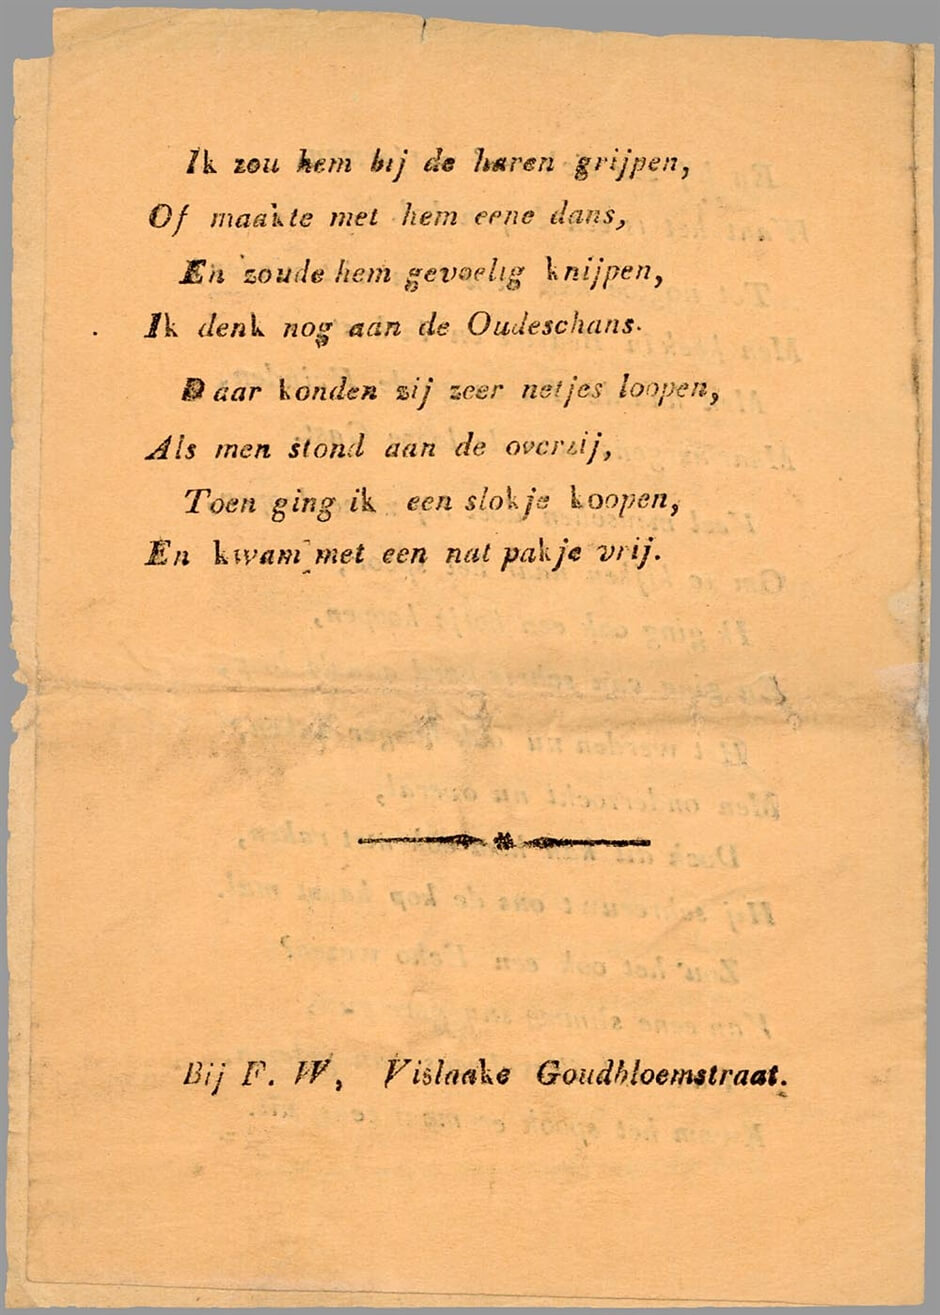 Ik zou hem bij de haren grijpen,
Of maakte met hem eene dans,
En zoude hem gevoelig knijpen,
Ik denk nog aan de Oudeschans.
Daar konden zij zeer netjes loopen,
Als men stond aan de overzij,
Toen ging ik een slokje koopen,
En kwam met een nat pakje vrij.
Bij F. W, Vislaake Goudbloemstraat.